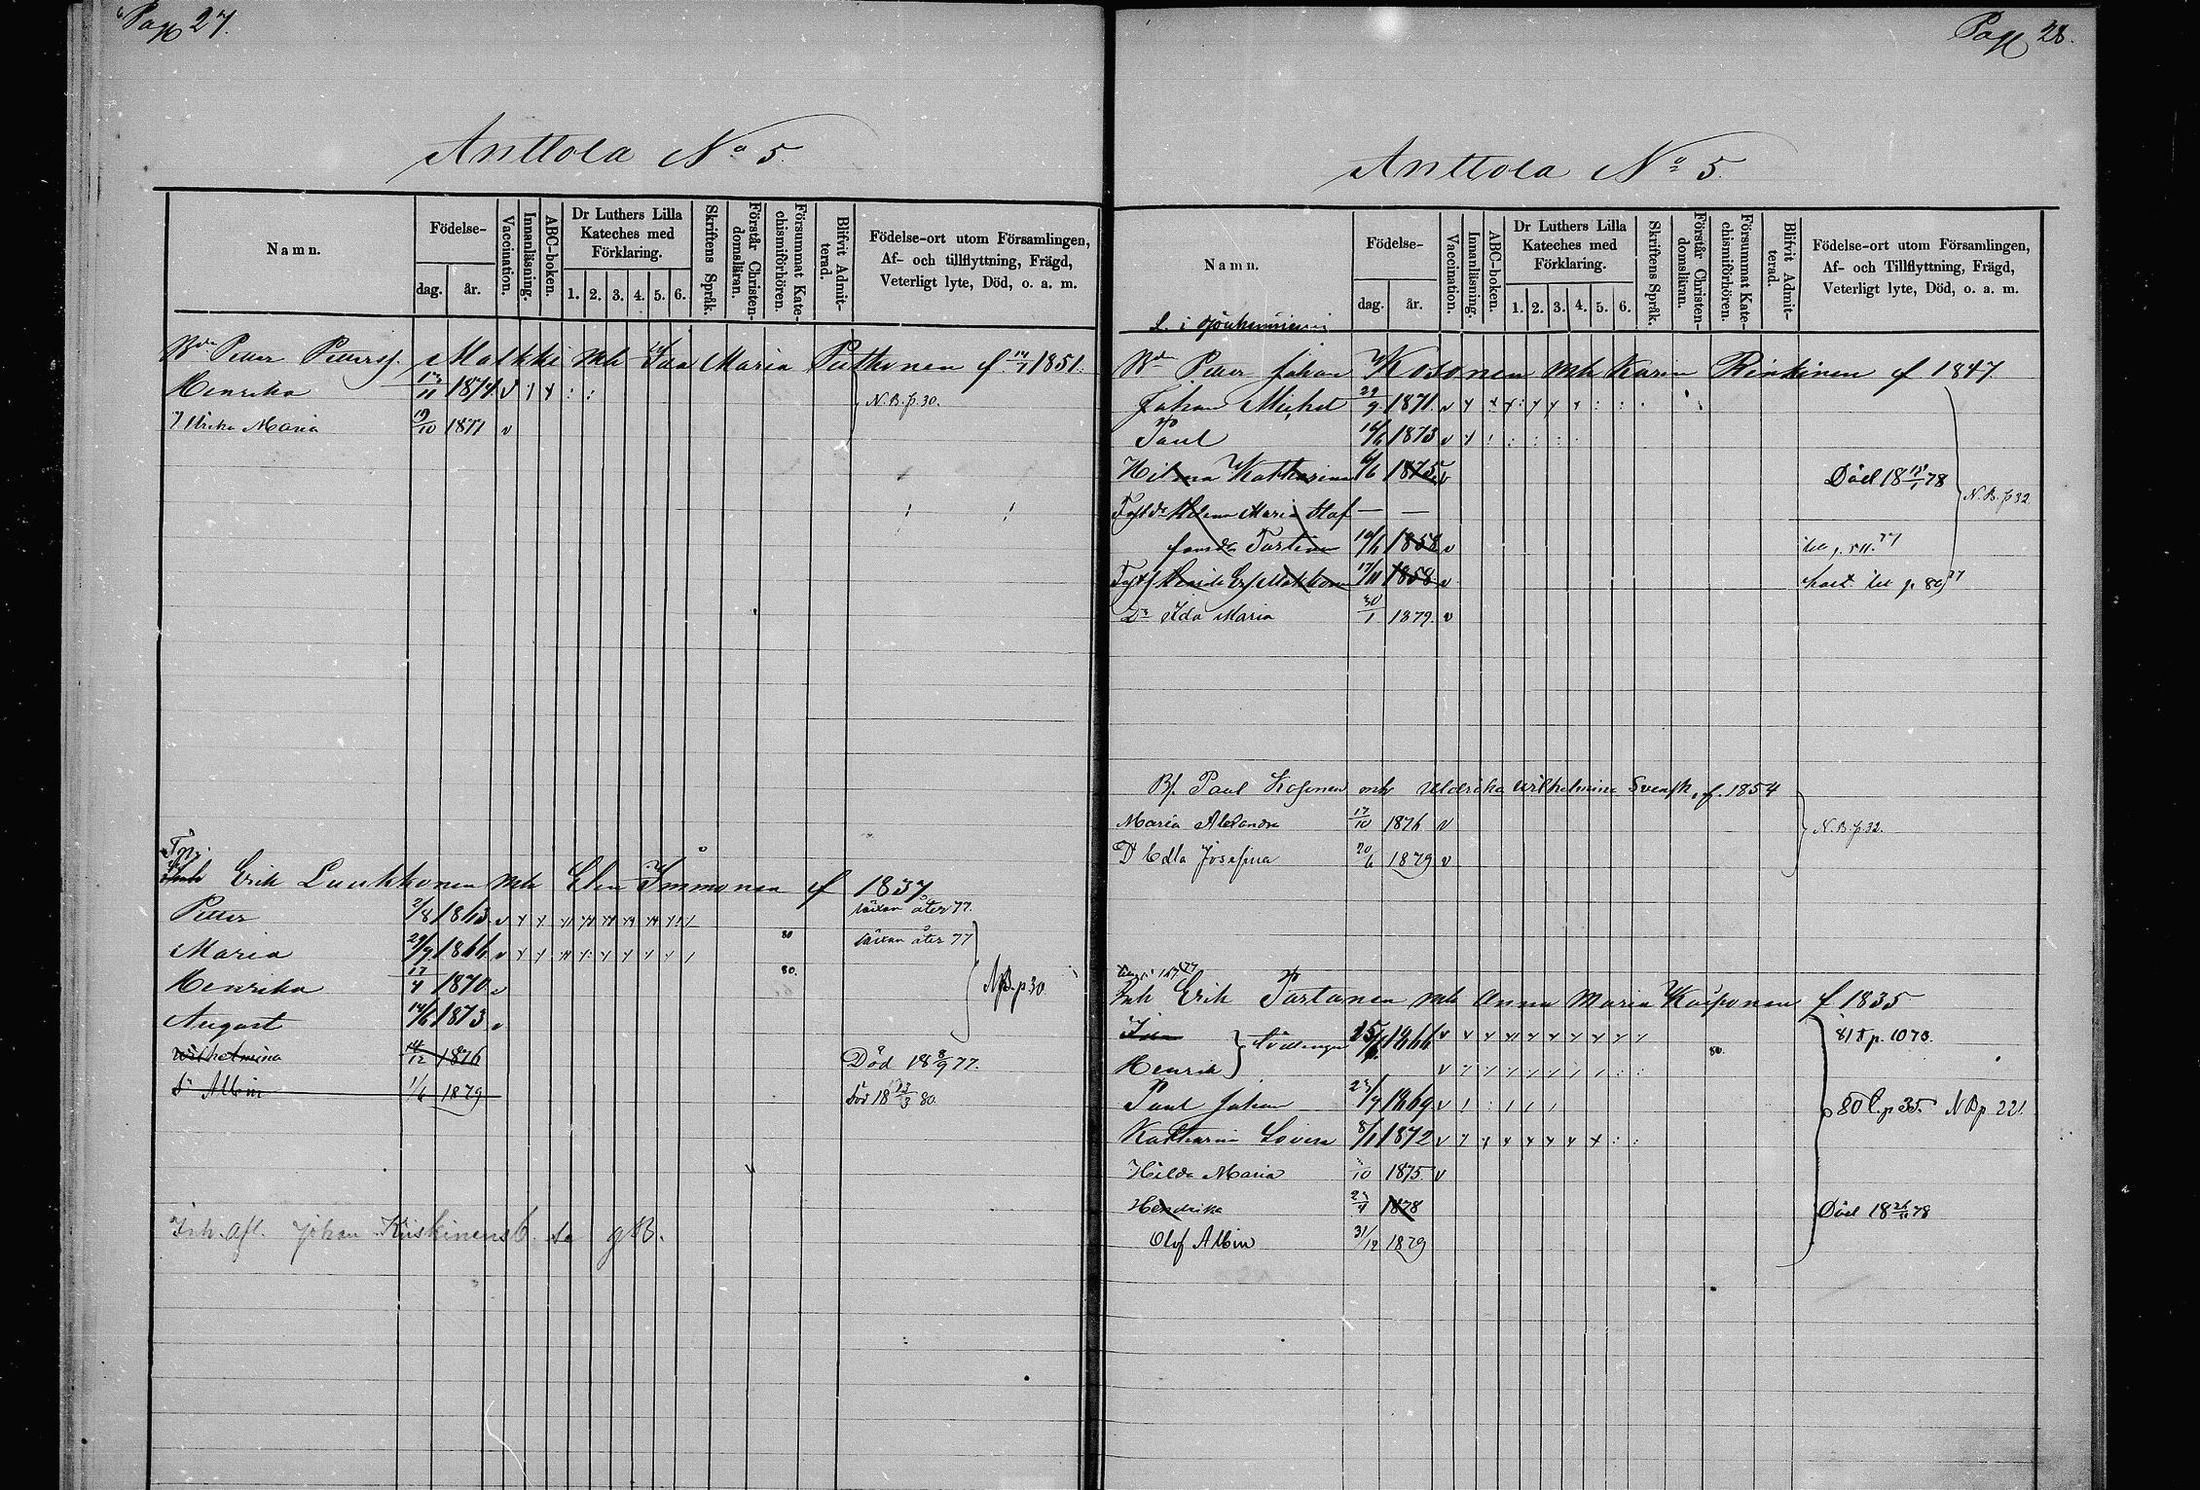 Pag 27.
Anttola No 5.
Namn.
Födelse-
dag.
år.
Vaccination.
Innanläsning.
ABC-boken.
Dr Luthers Lilla
Kateches med
Förklaring.
1. 2. 3. 4. 5. 6.
Skriftens Språk.
Förstår Christen-
domsläran.
Försummat Kate-
chismiförhören.
Blifvit Admit-
terad.
Födelse-ort utom Församlingen,
Af- och tillflyttning, Frägd,
Veterligt lyte, Död, o. a. m.
Petter Petterss. Malkki mh Ida Maria Puttonen f. 14/7 1851.
Henrika 13/11 1874 v
N.B. p. 30.
Ulrika Maria 19/10 1877 v
Erik Luukkonen mh Elin Immonen f 1837
Petter 2/8 1863 v
växan åter 77.
Maria 29/9 1866 v
80
växan åter 77
Henrika 17/4 1870 v
80.
N.B. p 30
August 14/6 1873 v
Wilhelmina 14/12 1876
Död 18 8/9 77.
Albin 1/6 1879
Död 18 23/3 80.
Inh. afl. Johan Kiiskinens
Pag 28.
Anttola No 5.
Namn.
Födelse-
dag.
år.
Vaccination.
Innanläsning.
ABC-boken.
Dr Luthers Lilla
Kateches med
Förklaring.
1. 2. 3. 4. 5. 6.
Skriftens Språk.
Förstår Christen-
domsläran.
Försummat Kate-
chismiförhören.
Blifvit Admit-
terad.
Födelse-ort utom Församlingen,
Af- och Tillflyttning, Frägd,
Veterligt lyte, Död, o. a. m.
Petter Johan Kosonen mh Karin Rinkinen f 1847
Johan Michel 29/9 1871. v
Paul 16/6 1873 v
Hilma Katharina 6/6 1875 v
Död 18 18/1 78
N.B. p 32
Helena Maria Olof — —
Tastinen 10/1 1858 v
17/11 1858 v
Ida Maria 30/1 1879. v
Bf. Paul Kosonen mh Uldrika Wilhelmina Svensk, f. 1854
Maria Alexandra 17/10 1876 v
N.B. p. 32.
D Edla Josefina 20/6 1879 v
Inh Erik Partanen mh Anna Maria Kaiponen f 1835
tvillingar 25/6 1866 v
81 p. 1073.
Henrik v
80.
Paul Johan 23/7 1869 v
80 p 35. N B p. 221.
Katharina Lovisa 8/1 1872 v
Hilda Maria 10 1875 v
Hendrika 23/4 1878
Död 18 78
Olof Albin 31/12 1879